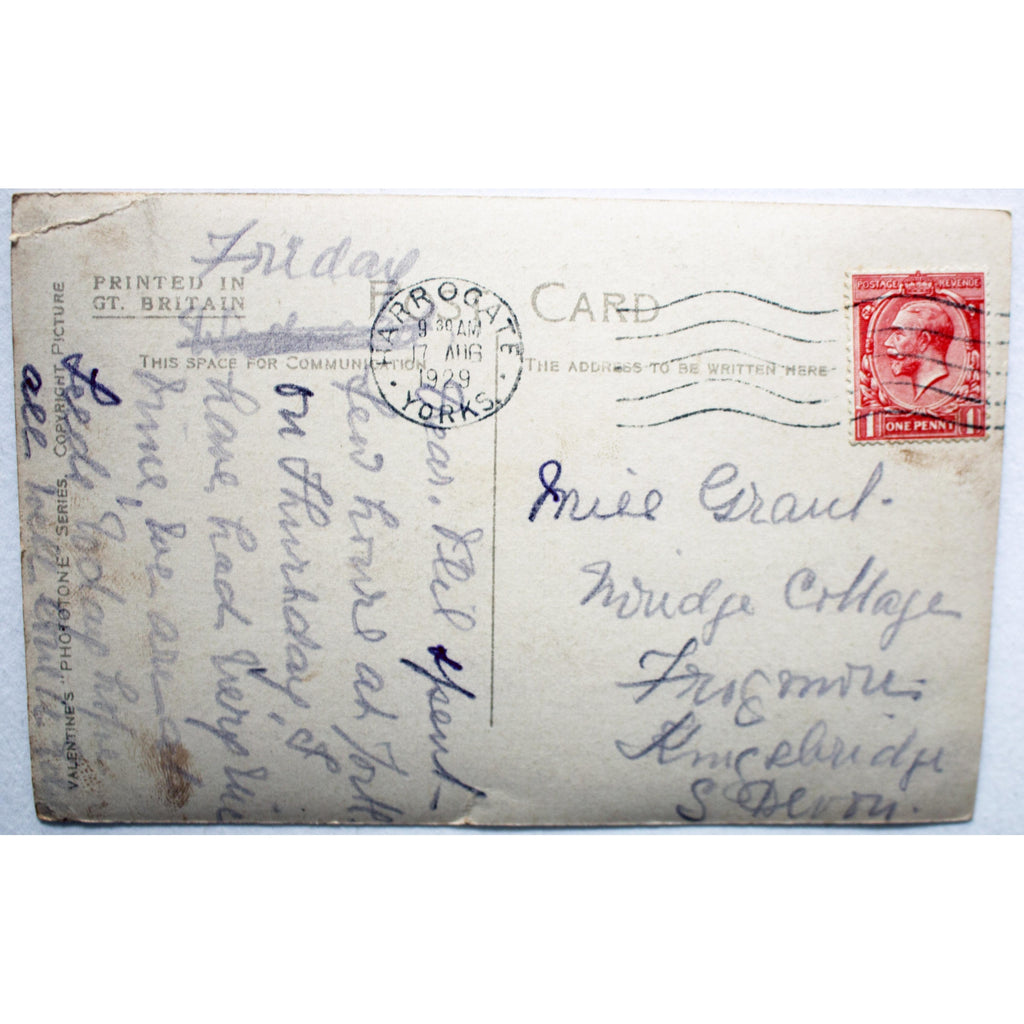 PRINTED IN
GT. BRITAIN
POST CARD
THIS SPACE FOR COMMUNICATION
THE ADDRESS TO BE WRITTEN HERE
VALENTINE'S "PHOTOTONE" SERIES. COPYRIGHT PICTURE
HARROGATE
9 30 AM
7 AUG
1929
YORKS.
POSTAGE REVENUE
1 ONE PENNY 1
Friday
Dear spent
few hours at York
on Thursday, &
have had very fine
time, we are at
Leeds today hope
all well with
Miss Grant
Cottage
Frogmore
Kingsbridge
S Devon.